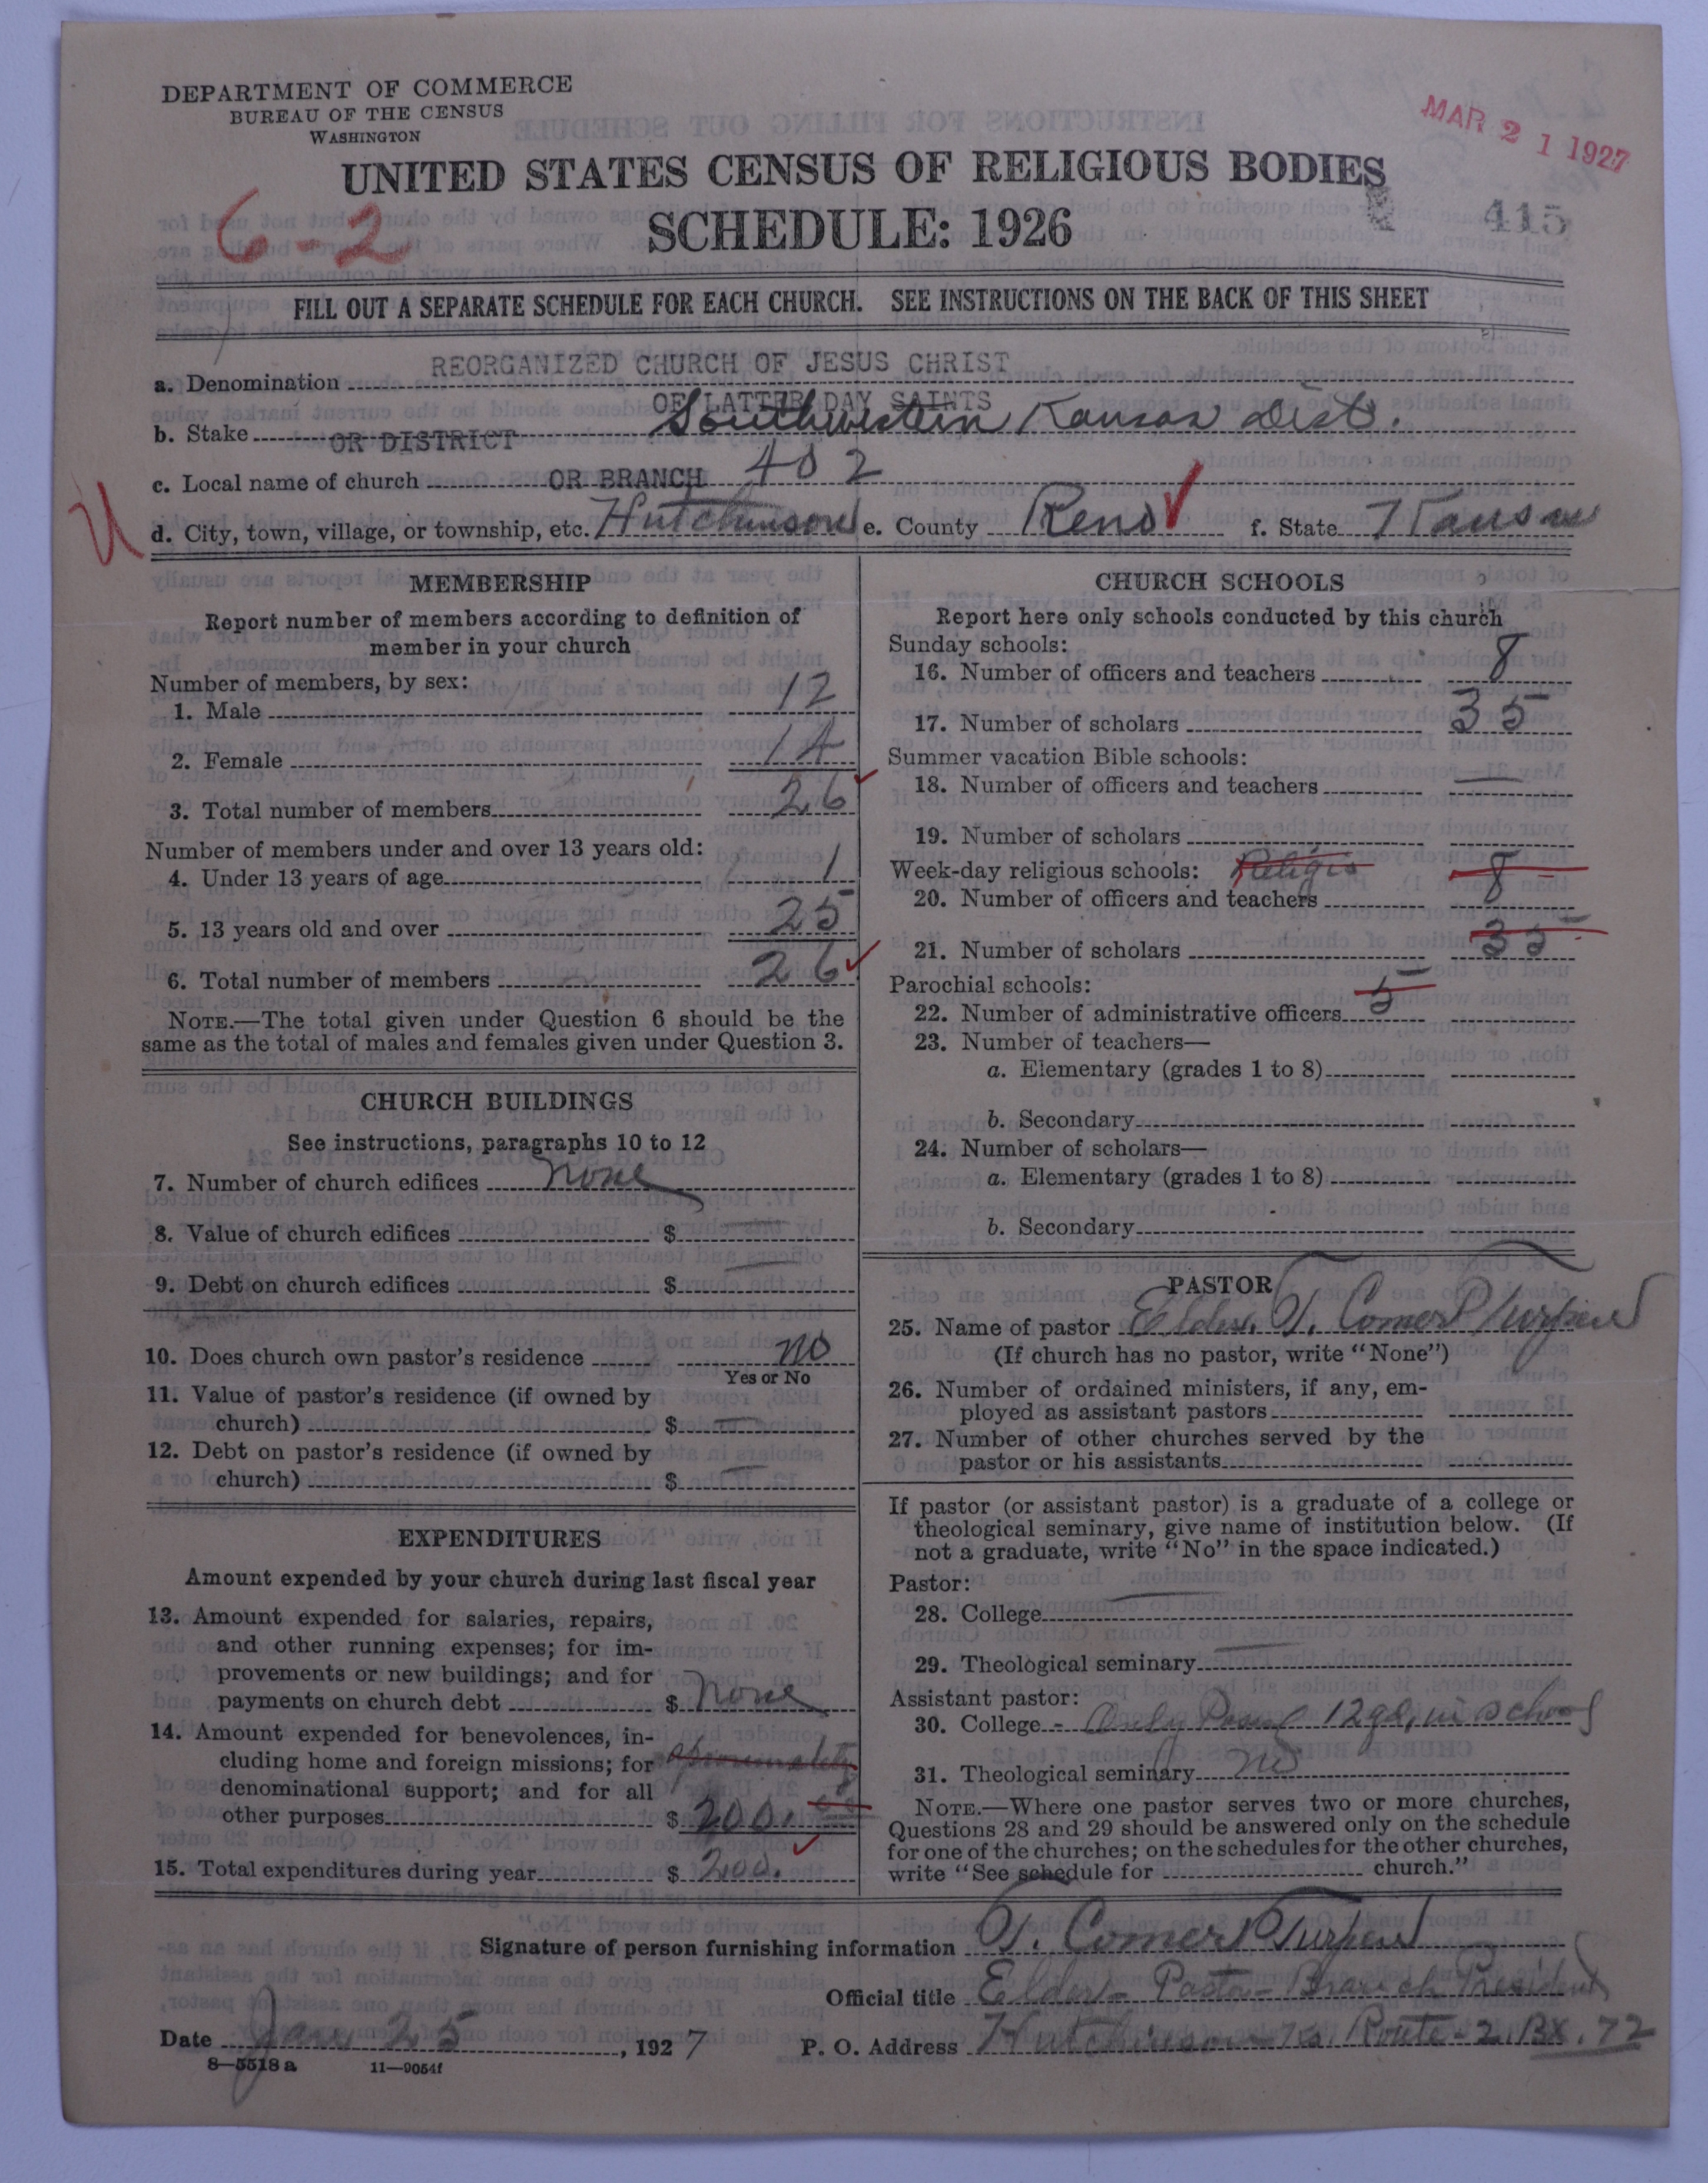 DEPARTMENT OF COMMERCE
BUREAU OF THE CENSUS
WASHINGTON
MAR 21 1927
UNITED STATES CENSUS OF RELIGIOUS BODIES
6-2
SCHEDULE: 1926
415
FILL OUT A SEPARATE SCHEDULE FOR EACH CHURCH. SEE INSTRUCTIONS ON THE BACK OF THIS SHEET
REORGANIZED CHURCH OF JESUS CHRIST
a. Denomination
OF LATTER DAY SAINTS
b. Stake OR DISTRICT Southwestern Kansas Dist.
c. Local name of church OR BRANCH 402
d. City, town, village, or township, etc. Hutchinson e. County Reno f. State Kansas
MEMBERSHIP
Report number of members according to definition of
member in your church
Number of members, by sex:
1. Male 12
2. Female 14
3. Total number of members 26
Number of members under and over 13 years old:
4. Under 13 years of age 1
5. 13 years old and over 25
6. Total number of members 26
NOTE.—The total given under Question 6 should be the
same as the total of males and females given under Question 3.
CHURCH BUILDINGS
See instructions, paragraphs 10 to 12
7. Number of church edifices none
8. Value of church edifices $
9. Debt on church edifices $
10. Does church own pastor's residence no
Yes or No
11. Value of pastor's residence (if owned by
church) $ —
12. Debt on pastor's residence (if owned by
church) $ —
EXPENDITURES
Amount expended by your church during last fiscal year
13. Amount expended for salaries, repairs,
and other running expenses; for im-
provements or new buildings; and for
payments on church debt $ none
14. Amount expended for benevolences, in-
cluding home and foreign missions; for
denominational support; and for all
other purposes $ 200.00
15. Total expenditures during year $ 200.
CHURCH SCHOOLS
Report here only schools conducted by this church
Sunday schools:
16. Number of officers and teachers 8
17. Number of scholars 35
Summer vacation Bible schools:
18. Number of officers and teachers —
19. Number of scholars
Week-day religious schools: Religio
20. Number of officers and teachers 8
21. Number of scholars 35
Parochial schools:
22. Number of administrative officers 5
23. Number of teachers—
a. Elementary (grades 1 to 8)
b. Secondary
24. Number of scholars—
a. Elementary (grades 1 to 8)
b. Secondary
PASTOR
25. Name of pastor Elder. T. Comer Turpen
(If church has no pastor, write "None")
26. Number of ordained ministers, if any, em-
ployed as assistant pastors
27. Number of other churches served by the
pastor or his assistants
If pastor (or assistant pastor) is a graduate of a college or
theological seminary, give name of institution below. (If
not a graduate, write "No" in the space indicated.)
Pastor:
28. College —
29. Theological seminary —
Assistant pastor:
30. College - Only 12 gd, in school
31. Theological seminary no
NOTE.—Where one pastor serves two or more churches,
Questions 28 and 29 should be answered only on the schedule
for one of the churches; on the schedules for the other churches,
write "See schedule for church."
Signature of person furnishing information T. Comer Turpen
Official title Elder - Pastor - Branch President
Date Jan 25, 1927 P. O. Address Hutchinson - Ks. Route - 2. Bx. 72
8—5518 a 11—9054f